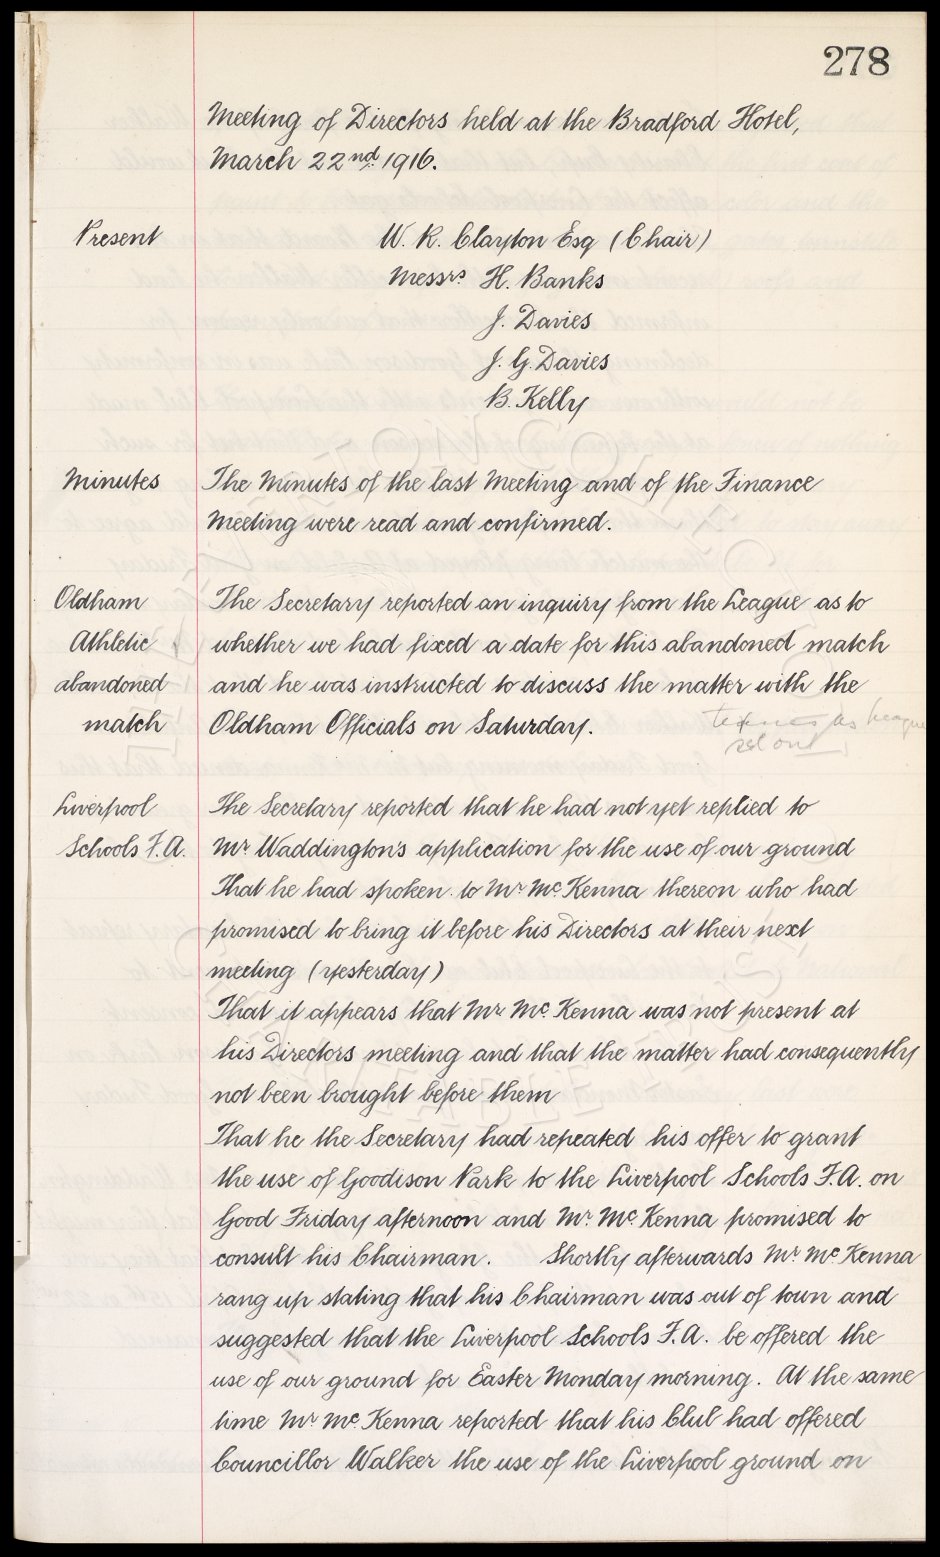 278
Meeting of Directors held at the Bradford Hotel,
March 22nd 1916.
Present
W. R. Clayton Esq (Chair)
Messrs H. Banks
J. Davies
J. G. Davies
B. Kelly
Minutes
The Minutes of the last Meeting and of the Finance
Meeting were read and confirmed.
Oldham
Athletic
abandoned
match
The Secretary reported an inquiry from the League as to
whether we had fixed a date for this abandoned match
and he was instructed to discuss the matter with the
Oldham Officials on Saturday.
as League
Liverpool
Schools F.A.
The Secretary reported that he had not yet replied to
Mr Waddington's application for the use of our ground
That he had spoken to Mr McKenna thereon who had
promised to bring it before his Directors at their next
meeting (yesterday)
That it appears that Mr McKenna was not present at
his Directors meeting and that the matter had consequently
not been brought before them
That he the Secretary had repeated his offer to grant
the use of Goodison Park to the Liverpool Schools F.A. on
Good Friday afternoon and Mr McKenna promised to
consult his Chairman. Shortly afterwards Mr McKenna
rang up stating that his Chairman was out of town and
suggested that the Liverpool Schools F.A. be offered the
use of our ground for Easter Monday morning. At the same
time Mr McKenna reported that his Club had offered
Councillor Walker the use of the Liverpool ground on